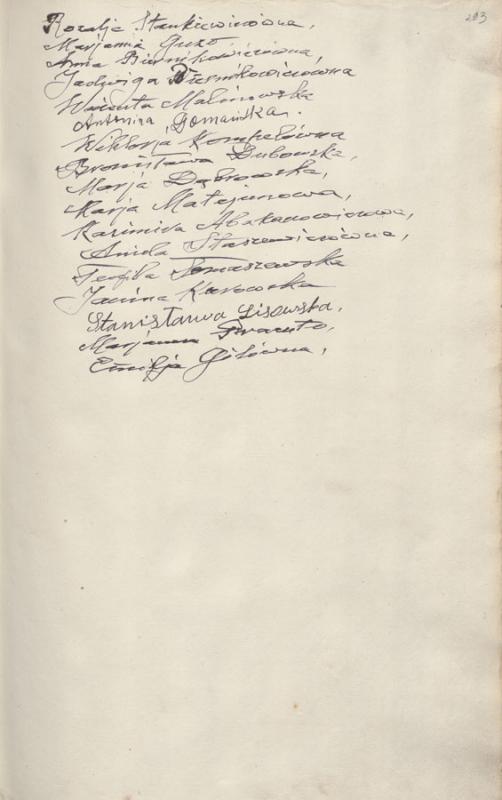 203
Rozalja Stankiewiczówna,
Marjanna
Anna
Jadwiga
Wincenta Malinowska
Antonina Domańska.
Wiktorja Kompelówna
Bronisława Dubowska,
Marja Dąbrowska,
Marja Matejunowa,
Kazimiera Abakanowiczowa,
Aniela Staszewiczówna,
Teofila Tomaszewska
Janina Kurowska
Stanisława Lisowska,
Marjanna
Emilja Gilówna,